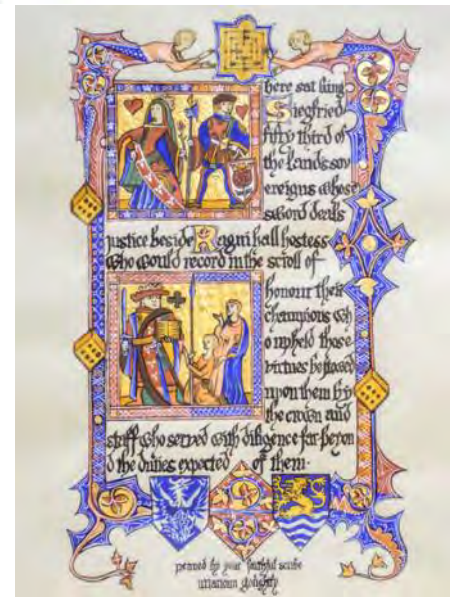 here sat king
Siegfried
fifty third of
the lands sov
ereigns whose
sword deals
justice beside Ragni hall hostess
who would record in the scroll of
honour their
champions wh
o upheld those
virtues he placed
upon them by
the crown and
staff who served with diligence far beyon
d the duties expected of them.
penned by your faithful scribe
golightly